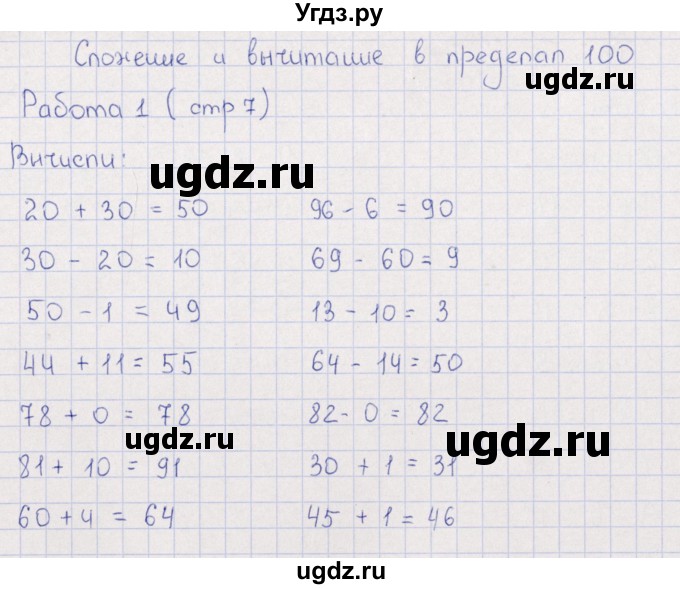 Угдз.ру
Сложение и вычитание в пределах 100
Работа 1 ( стр 7)
Вычисли:
20 + 30 = 50 96 - 6 = 90
30 - 20 = 10 69 - 60 = 9
50 - 1 = 49 13 - 10 = 3
44 + 11 = 55 64 - 14 = 50
78 + 0 = 78 82 - 0 = 82
81 + 10 = 91 30 + 1 = 31
60 + 4 = 64 45 + 1 = 46
ugdz.ru
ugdz.ru
ugdz.ru
ugdz.ru
ugdz.ru